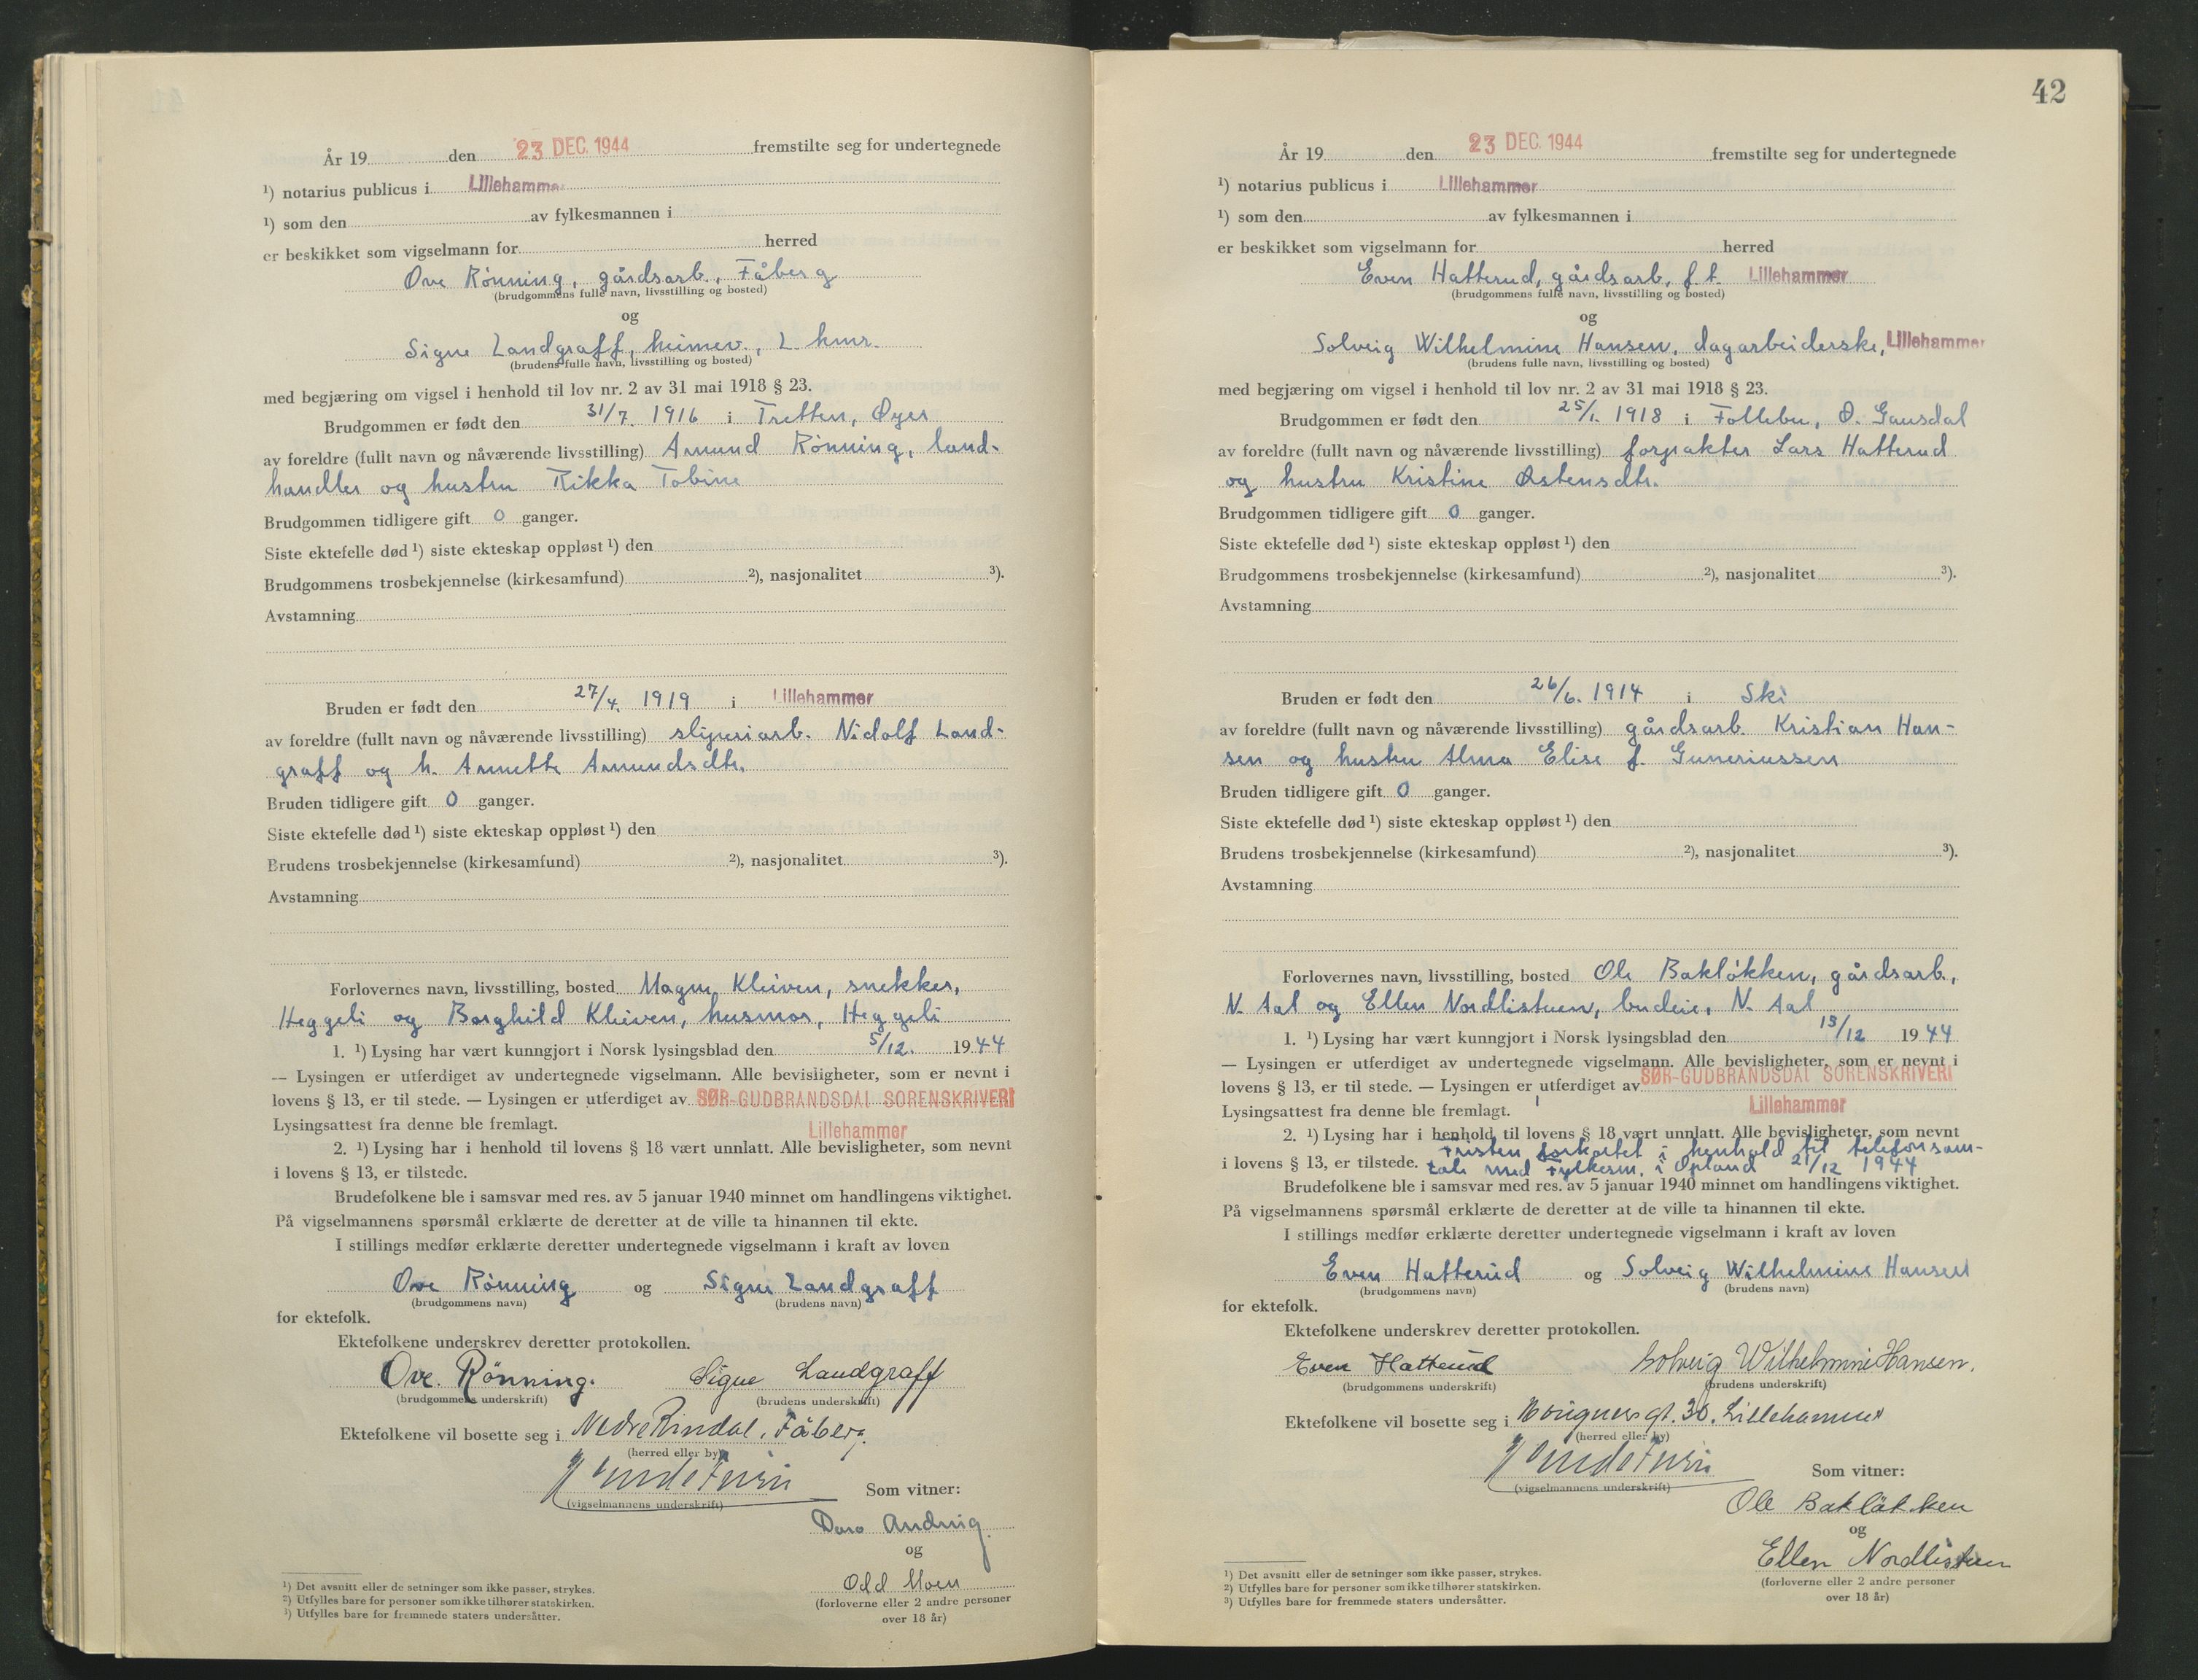 År 19 den 23 DEC. 1944 fremstilte seg for undertegnede
¹) notarius publicus i Lillehammer
¹) som den av fylkesmannen i
er beskikket som vigselmann for herred
Ove Rönning, gårdsarb., Fåberg
(brudgommens fulle navn, livsstilling og bosted)
og
Signe Landgraff, heimev., L.hmr.
(brudens fulle navn, livsstilling og bosted)
med begjæring om vigsel i henhold til lov nr. 2 av 31 mai 1918 § 23.
Brudgommen er født den 31/7. 1916 i Tretten, Øyer
av foreldre (fullt navn og nåværende livsstilling) Amund Rönning, land-
handler og hustru Rikka Tobine
Brudgommen tidligere gift 0 ganger.
Siste ektefelle død ¹) siste ekteskap oppløst ¹) den
Brudgommens trosbekjennelse (kirkesamfund) ²), nasjonalitet ³).
Avstamning
Bruden er født den 27/4. 1919 i Lillehammer
av foreldre (fullt navn og nåværende livsstilling) sliperiarb. Nidolf Land-
graff og h. Annette Amundsdtr.
Bruden tidligere gift 0 ganger.
Siste ektefelle død ¹) siste ekteskap oppløst ¹) den
Brudens trosbekjennelse (kirkesamfund) ²), nasjonalitet ³).
Avstamning
Forlovernes navn, livsstilling, bosted Magne Kleiven, snekker,
Heggeli og Borghild Kleiven, husmor, Heggeli
1. ¹) Lysing har vært kunngjort i Norsk lysingsblad den 5/12. 1944
— Lysingen er utferdiget av undertegnede vigselmann. Alle bevisligheter, som er nevnt i
lovens § 13, er til stede. — Lysingen er utferdiget av SØR-GUDBRANDSDAL SORENSKRIVERI
Lysingsattest fra denne ble fremlagt. Lillehammer
2. ¹) Lysing har i henhold til lovens § 18 vært unnlatt. Alle bevisligheter, som nevnt
i lovens § 13, er tilstede.
Brudefolkene ble i samsvar med res. av 5 januar 1940 minnet om handlingens viktighet.
På vigselmannens spørsmål erklærte de deretter at de ville ta hinannen til ekte.
I stillings medfør erklærte deretter undertegnede vigselmann i kraft av loven
Ove Rönning og Signe Landgraff
(brudgommens navn) (brudens navn)
for ektefolk.
Ektefolkene underskrev deretter protokollen.
Ove. Rönning. Signe Landgraff
(brudgommens underskrift) (brudens underskrift)
Ektefolkene vil bosette seg i Nedre Rindal, Fåberg.
(herred eller by)
(vigselmannens underskrift) Som vitner:
og
Odd Moen
(forloverne eller 2 andre personer
over 18 år)
¹) Det avsnitt eller de setninger som ikke passer, strykes.
²) Utfylles bare for personer som ikke tilhører statskirken.
³) Utfylles bare for fremmede staters undersåtter.
42
År 19 den 23 DEC. 1944 fremstilte seg for undertegnede
¹) notarius publicus i Lillehammer
¹) som den av fylkesmannen i
er beskikket som vigselmann for herred
Even Hatterud, gårdsarb., f.t. Lillehammer
(brudgommens fulle navn, livsstilling og bosted)
og
Solveig Wilhelmine Hansen, dagarbeiderske, Lillehammer
(brudens fulle navn, livsstilling og bosted)
med begjæring om vigsel i henhold til lov nr. 2 av 31 mai 1918 § 23.
Brudgommen er født den 25/1. 1918 i Follebu, Ø. Gausdal
av foreldre (fullt navn og nåværende livsstilling) forpakter Lars Hatterud
og hustru Kristine Østensdtr.
Brudgommen tidligere gift 0 ganger.
Siste ektefelle død ¹) siste ekteskap oppløst ¹) den
Brudgommens trosbekjennelse (kirkesamfund) ²), nasjonalitet ³).
Avstamning
Bruden er født den 26/6. 1914 i Ski
av foreldre (fullt navn og nåværende livsstilling) gårdsarb. Kristian Han-
sen og hustru Alma Elise f. Guneriussen
Bruden tidligere gift 0 ganger.
Siste ektefelle død ¹) siste ekteskap oppløst ¹) den
Brudens trosbekjennelse (kirkesamfund) ²), nasjonalitet ³).
Avstamning
Forlovernes navn, livsstilling, bosted Ole Baklökken, gårdsarb.,
N. Aal og Ellen Nordlistuen, budeie, N. Aal
1. ¹) Lysing har vært kunngjort i Norsk lysingsblad den 13/12 1944
— Lysingen er utferdiget av undertegnede vigselmann. Alle bevisligheter, som er nevnt i
lovens § 13, er til stede. — Lysingen er utferdiget av SØR-GUDBRANDSDAL SORENSKRIVERI
Lysingsattest fra denne ble fremlagt. Lillehammer
2. ¹) Lysing har i henhold til lovens § 18 vært unnlatt. Alle bevisligheter, som nevnt
i lovens § 13, er tilstede. Fristen forkortet i henhold til telefonsam-
tale med Fylkesm. i Opland 21/12 1944
Brudefolkene ble i samsvar med res. av 5 januar 1940 minnet om handlingens viktighet.
På vigselmannens spørsmål erklærte de deretter at de ville ta hinannen til ekte.
I stillings medfør erklærte deretter undertegnede vigselmann i kraft av loven
Even Hatterud og Solveig Wilhelmine Hansen
(brudgommens navn) (brudens navn)
for ektefolk.
Ektefolkene underskrev deretter protokollen.
Even Hatterud Solveig Wilhelmine Hansen.
(brudgommens underskrift) (brudens underskrift)
Ektefolkene vil bosette seg i gt. 30. Lillehammer
(herred eller by)
(vigselmannens underskrift) Som vitner:
Ole Baklökken
og
Ellen Nordlistuen
(forloverne eller 2 andre personer
over 18 år)
¹) Det avsnitt eller de setninger som ikke passer, strykes.
²) Utfylles bare for personer som ikke tilhører statskirken.
³) Utfylles bare for fremmede staters undersåtter.